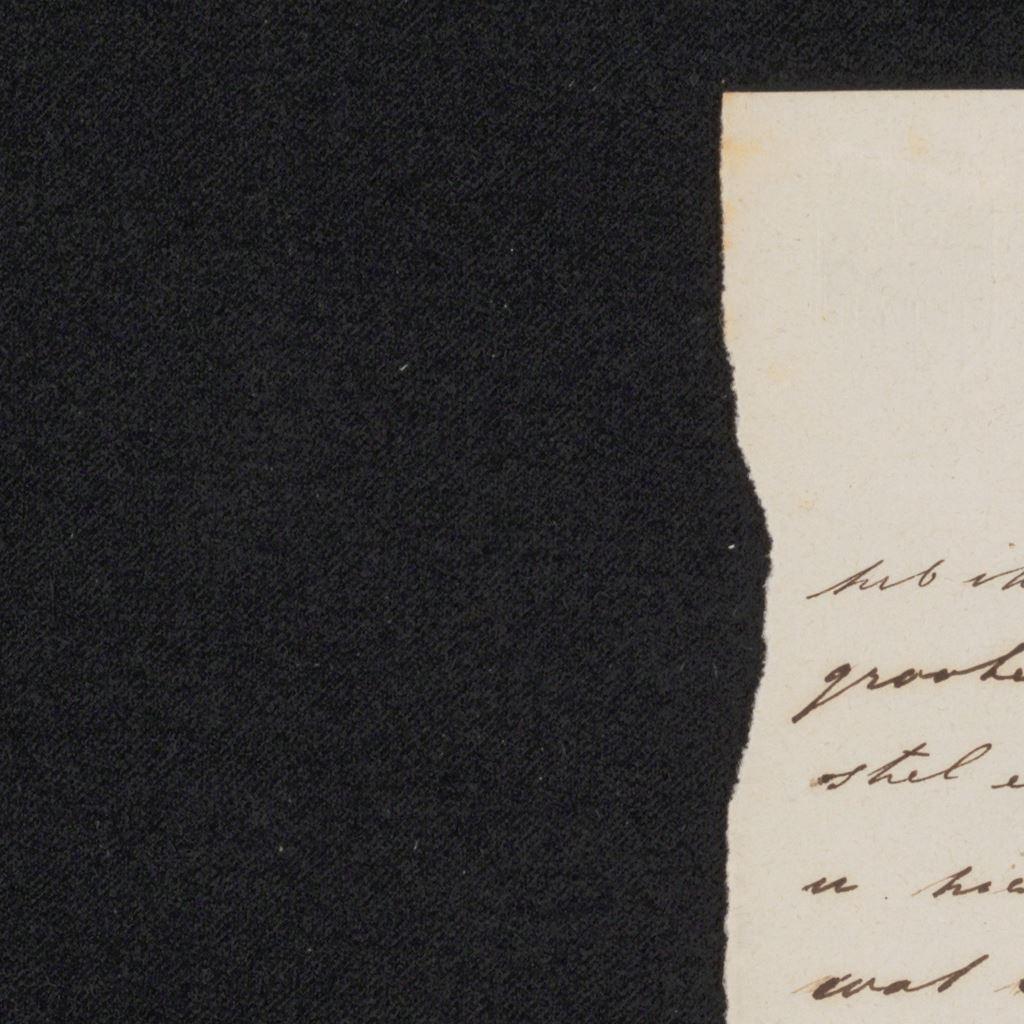 heb ik
groote
stel e
u hie
wat